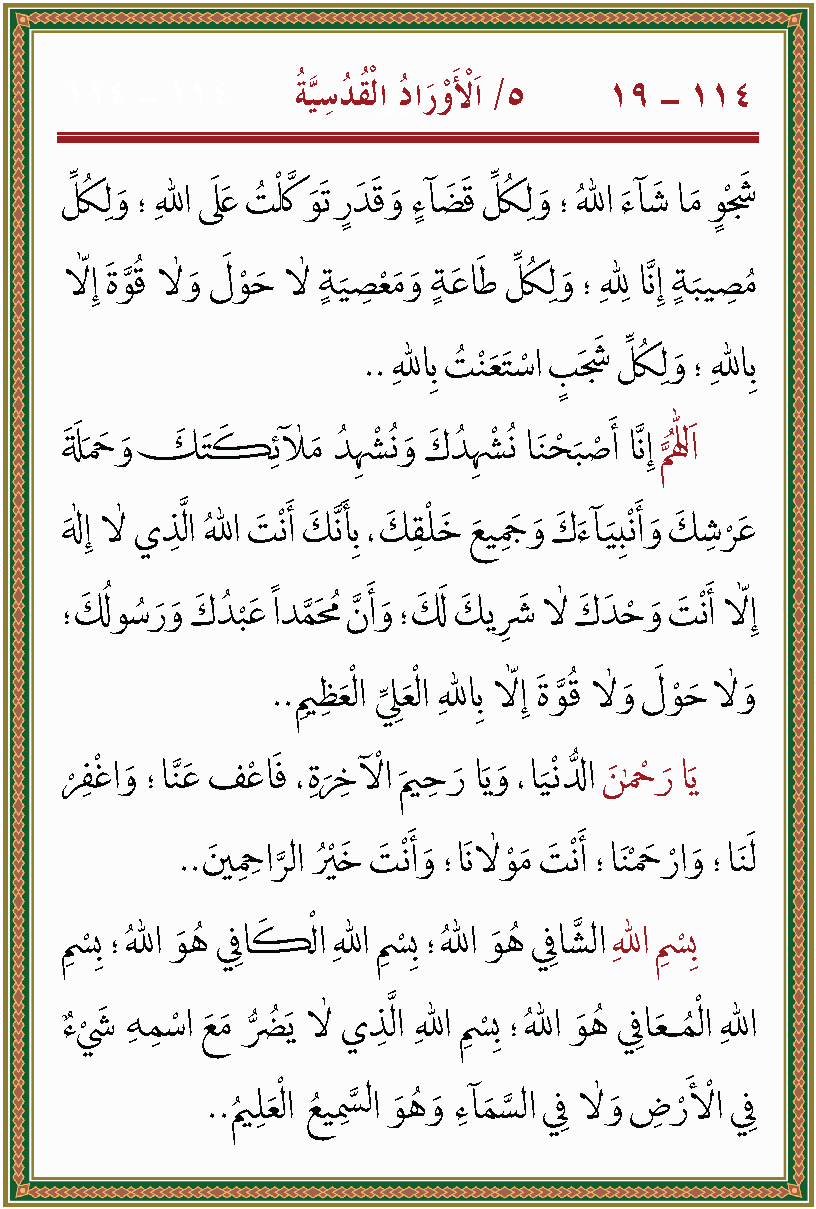 ١١٤ – ١٩ ٥/ اَلْأَوْرَادُ الْقُدُسِيَّةُ ١١٤ – ١١٤
شَجْوٍ مَا شَآءَ اللهُ ؛ وَلِكُلِّ قَضَآءٍ وَقَدَرٍ تَوَكَّلْتُ عَلَى اللهِ ؛ وَلِكُلِّ
مُصِيبَةٍ إِنَّا لِلهِ ؛ وَلِكُلِّ طَاعَةٍ وَمَعْصِيَةٍ لاٰ حَوْلَ وَلاٰ قُوَّةَ إِلاّٰ
بِاللهِ ؛ وَلِكُلِّ شَجَبٍ اسْتَعَنْتُ بِاللهِ ..
اَللّٰهُمَّ إِنَّا أَصْبَحْنَا نُشْهِدُكَ وَنُشْهِدُ مَلآٰئِكَتَكَ وَحَمَلَةَ
عَرْشِكَ وَأَنْبِيَآءَكَ وَجَمِيعَ خَلْقِكَ ، بِأَنَّكَ أَنْتَ اللهُ الَّذِي لاٰ إِلٰهَ
إِلاّٰ أَنْتَ وَحْدَكَ لاٰ شَرِيكَ لَكَ ؛ وَأَنَّ مُحَمَّداً عَبْدُكَ وَرَسُولُكَ ؛
وَلاٰ حَوْلَ وَلاٰ قُوَّةَ إِلاّٰ بِاللهِ الْعَلِيِّ الْعَظِيمِ..
يَا رَحْمٰنَ الدُّنْيَا ، وَيَا رَحِيمَ الْآخِرَةِ ، فَاعْفُ عَنَّا ؛ وَاغْفِرْ
لَنَا ؛ وَارْحَمْنَا ؛ أَنْتَ مَوْلاٰنَا ؛ وَأَنْتَ خَيْرُ الرَّاحِمِينَ..
بِسْمِ اللهِ الشَّافِي هُوَ اللهُ ؛ بِسْمِ اللهِ الْكَافِي هُوَ اللهُ ؛ بِسْمِ
اللهِ الْمُعَافِي هُوَ اللهُ ؛ بِسْمِ اللهِ الَّذِي لاٰ يَضُرُّ مَعَ اسْمِهِ شَيْءٌ
فِي الْأَرْضِ وَلاٰ فِي السَّمَآءِ وَهُوَ السَّمِيعُ الْعَلِيمُ..